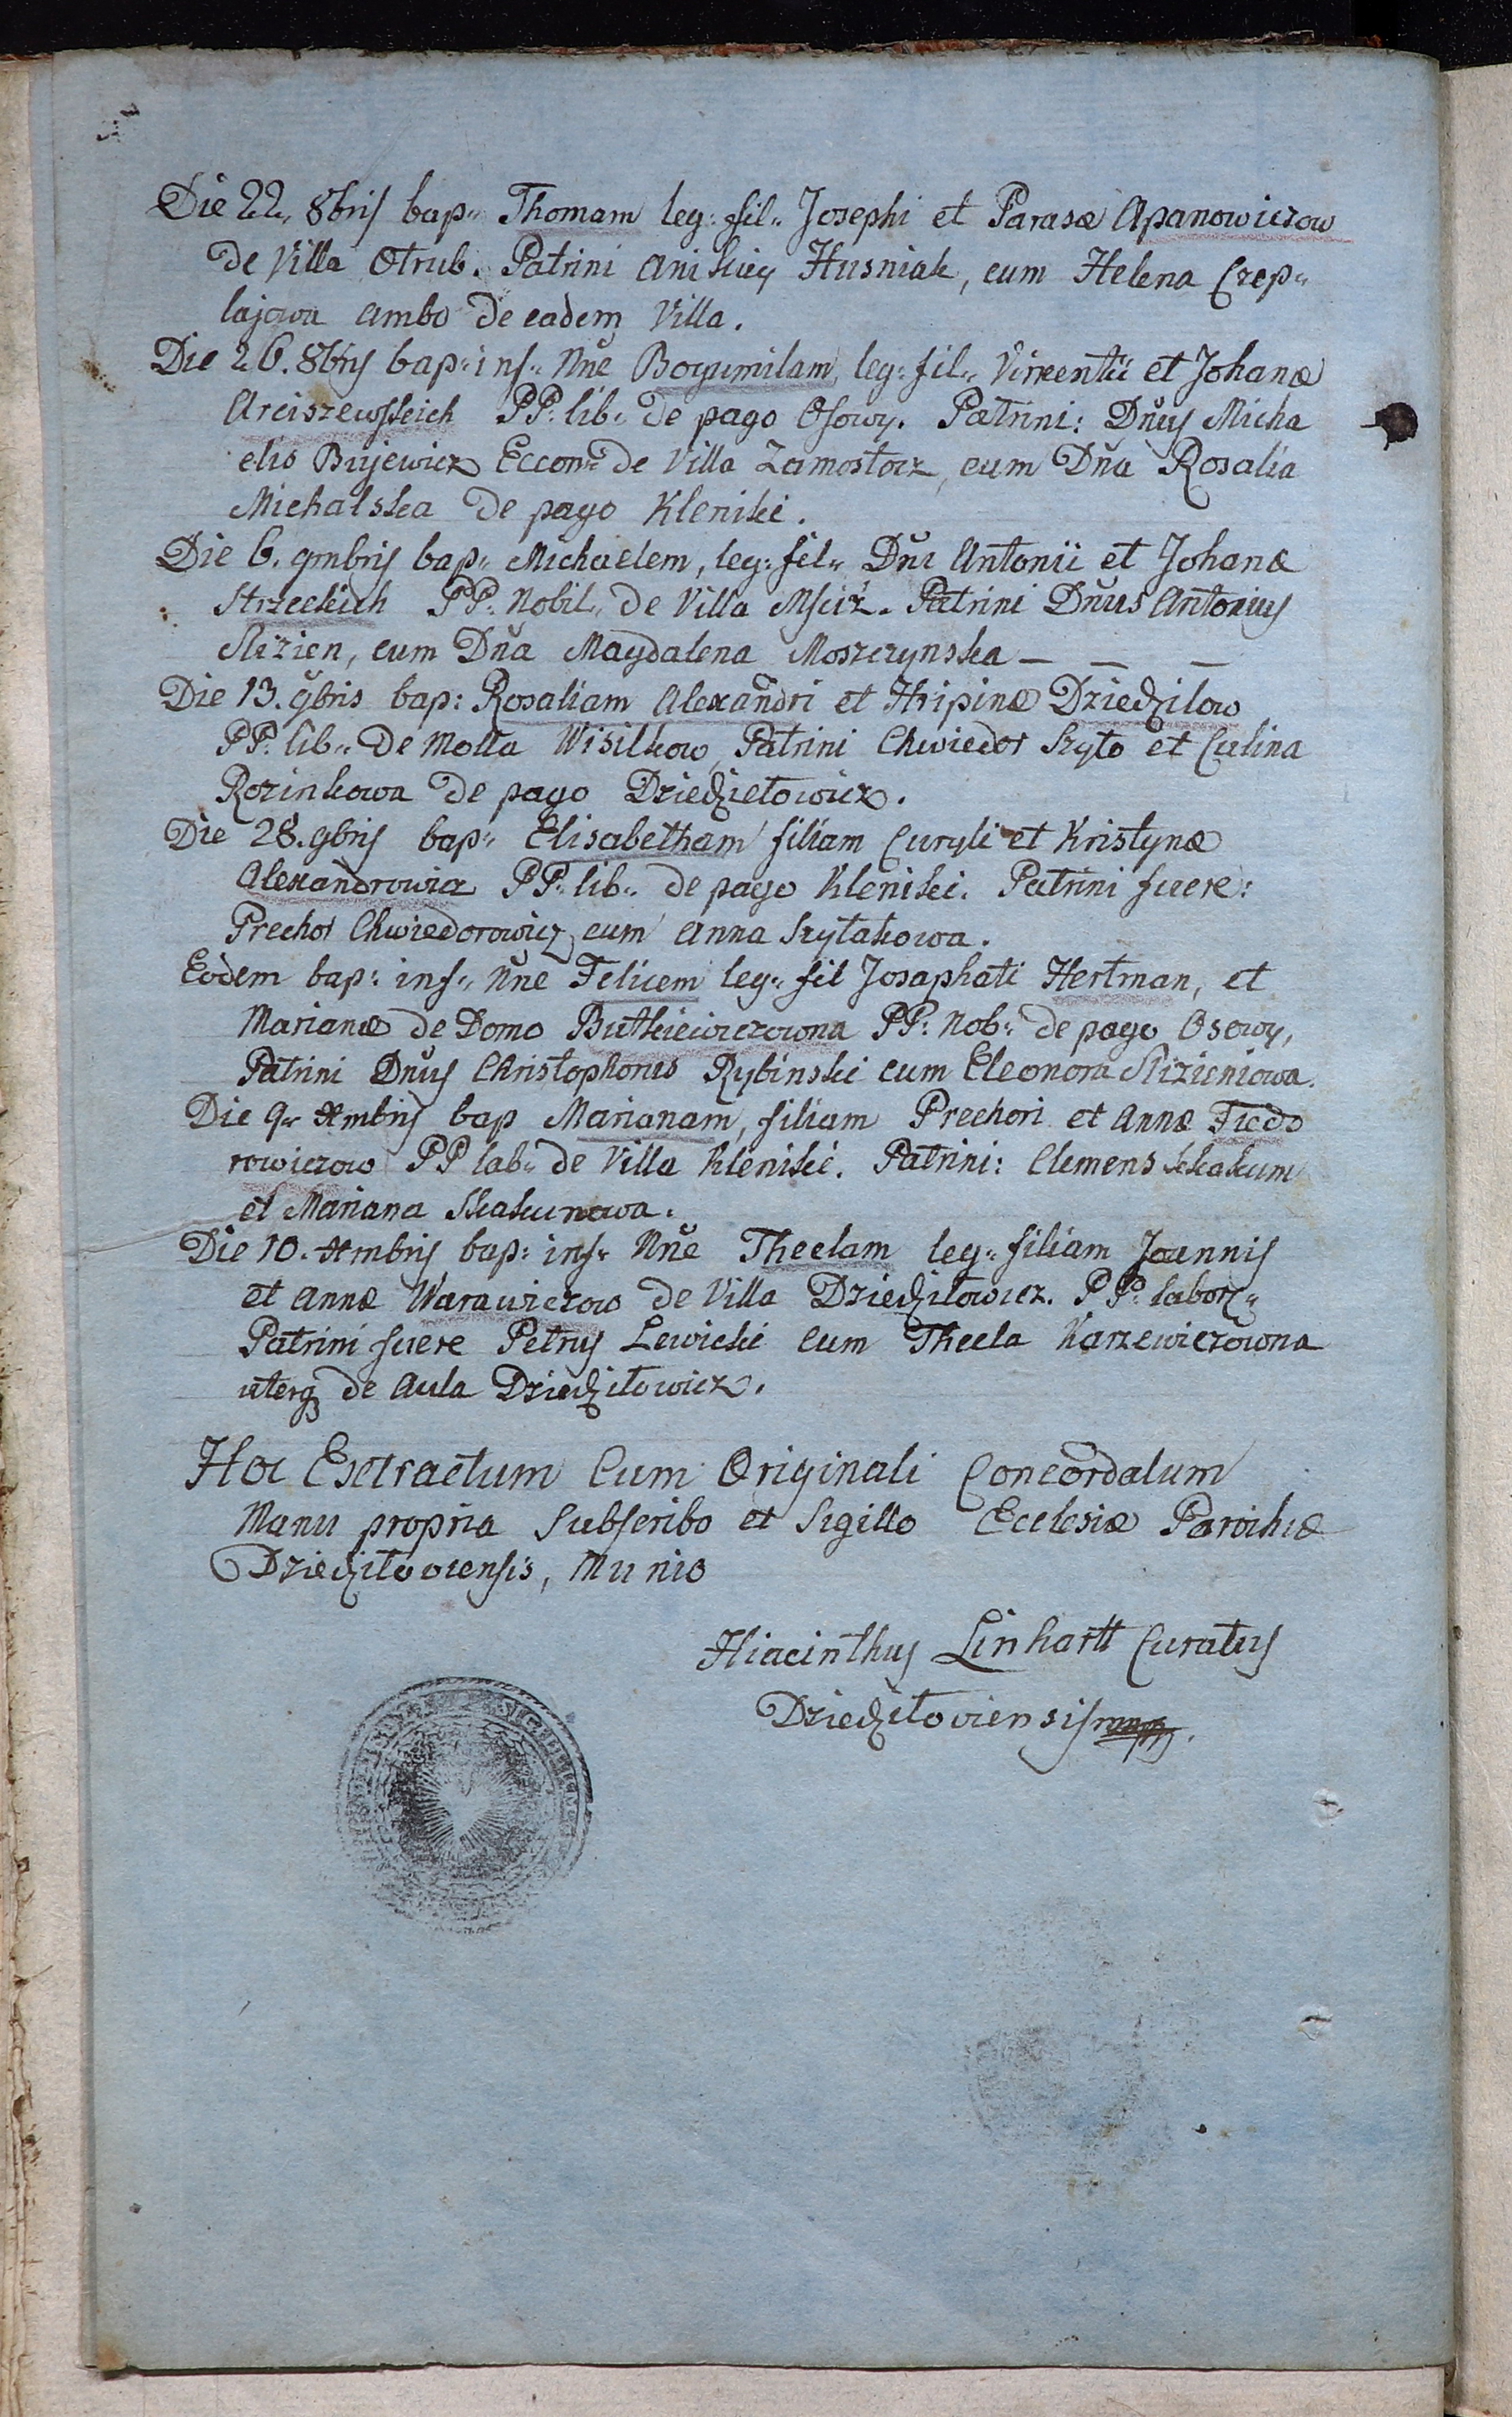 Die 22„ 8bris bap„ Thomam leg: fil„ Josephi et Parasæ Apanowiczow
de Villa Otrub. Patrini Anikiey Husniak, cum Helena Czep„
lajowa ambo de eadem Villa.
Die 26. 8bris bap: inf„ Nñe Bogumilam, leg: fil„ Vincentii et Johanæ
Arciszewskich PP: lib„ de pago Osowy. Patrini: Dñus Micha
elis Buyewicz Econ„ de Villa Zamostocz, cum Dña Rosalia
Michalska de pago Kleniki.
Die 6. 9mbris bap„ Michaelem, leg: fil„ Dñi Antonii et Johanæ
Strzeckich PP: Nobil„ de Villa Mściż. Patrini Dñus Antonius
Slizien, cum Dña Magdalena Moszczynska — — —
Die 13. 9bris bap: Rosaliam Alexandri et Hripinæ Dziedzilow
PP: lib„ de Molla Wisilkow, Patrini Chwiedor Szyto et Culina
Rozinkowa de pago Dziedziłowicz.
Die 28. 9bris bap„ Elisabetham filiam Curyli et Kristynæ
Alexandrowicz PP: lib„ de pago Kleniki. Patrini fuere:
Prechor Chwiedorowicz, cum Anna Szytakowa.
Eodem bap: inf„ Nñe Felicem leg„ fil Josaphati Hertman, et
Marianæ de Domo Butkiewiczowna PP: Nob„ de pago Osowy,
Patrini Dñus Christophorus Rybinski cum Eleonora Slizieniowa.
Die 9„ Xmbris bap Marianam, filiam Prechori et Annæ Fiedo
rowiczow PP lab„ de Villa Kleniki. Patrini: Clemens Skakum
et Mariana Skakunowa.
Die 10. Xmbris bap: inf„ Nñe Theclam leg„ filiam Joannis
et Annæ Warawiczow de Villa Dziedziłowicz. PP: labor„
Patrini fuere Petrus Lewicki cum Thecla Karzewiczowna
uterq de Aula Dziedziłowicz.
Hoc Extractum Cum Originali Concordatum
Manu propria Subscribo et Sigillo Ecclesiæ Parochiæ
Dziedziłoviensis, Munio
Hiacinthus Linhartt Curatus
Dziedziłoviensis mp.